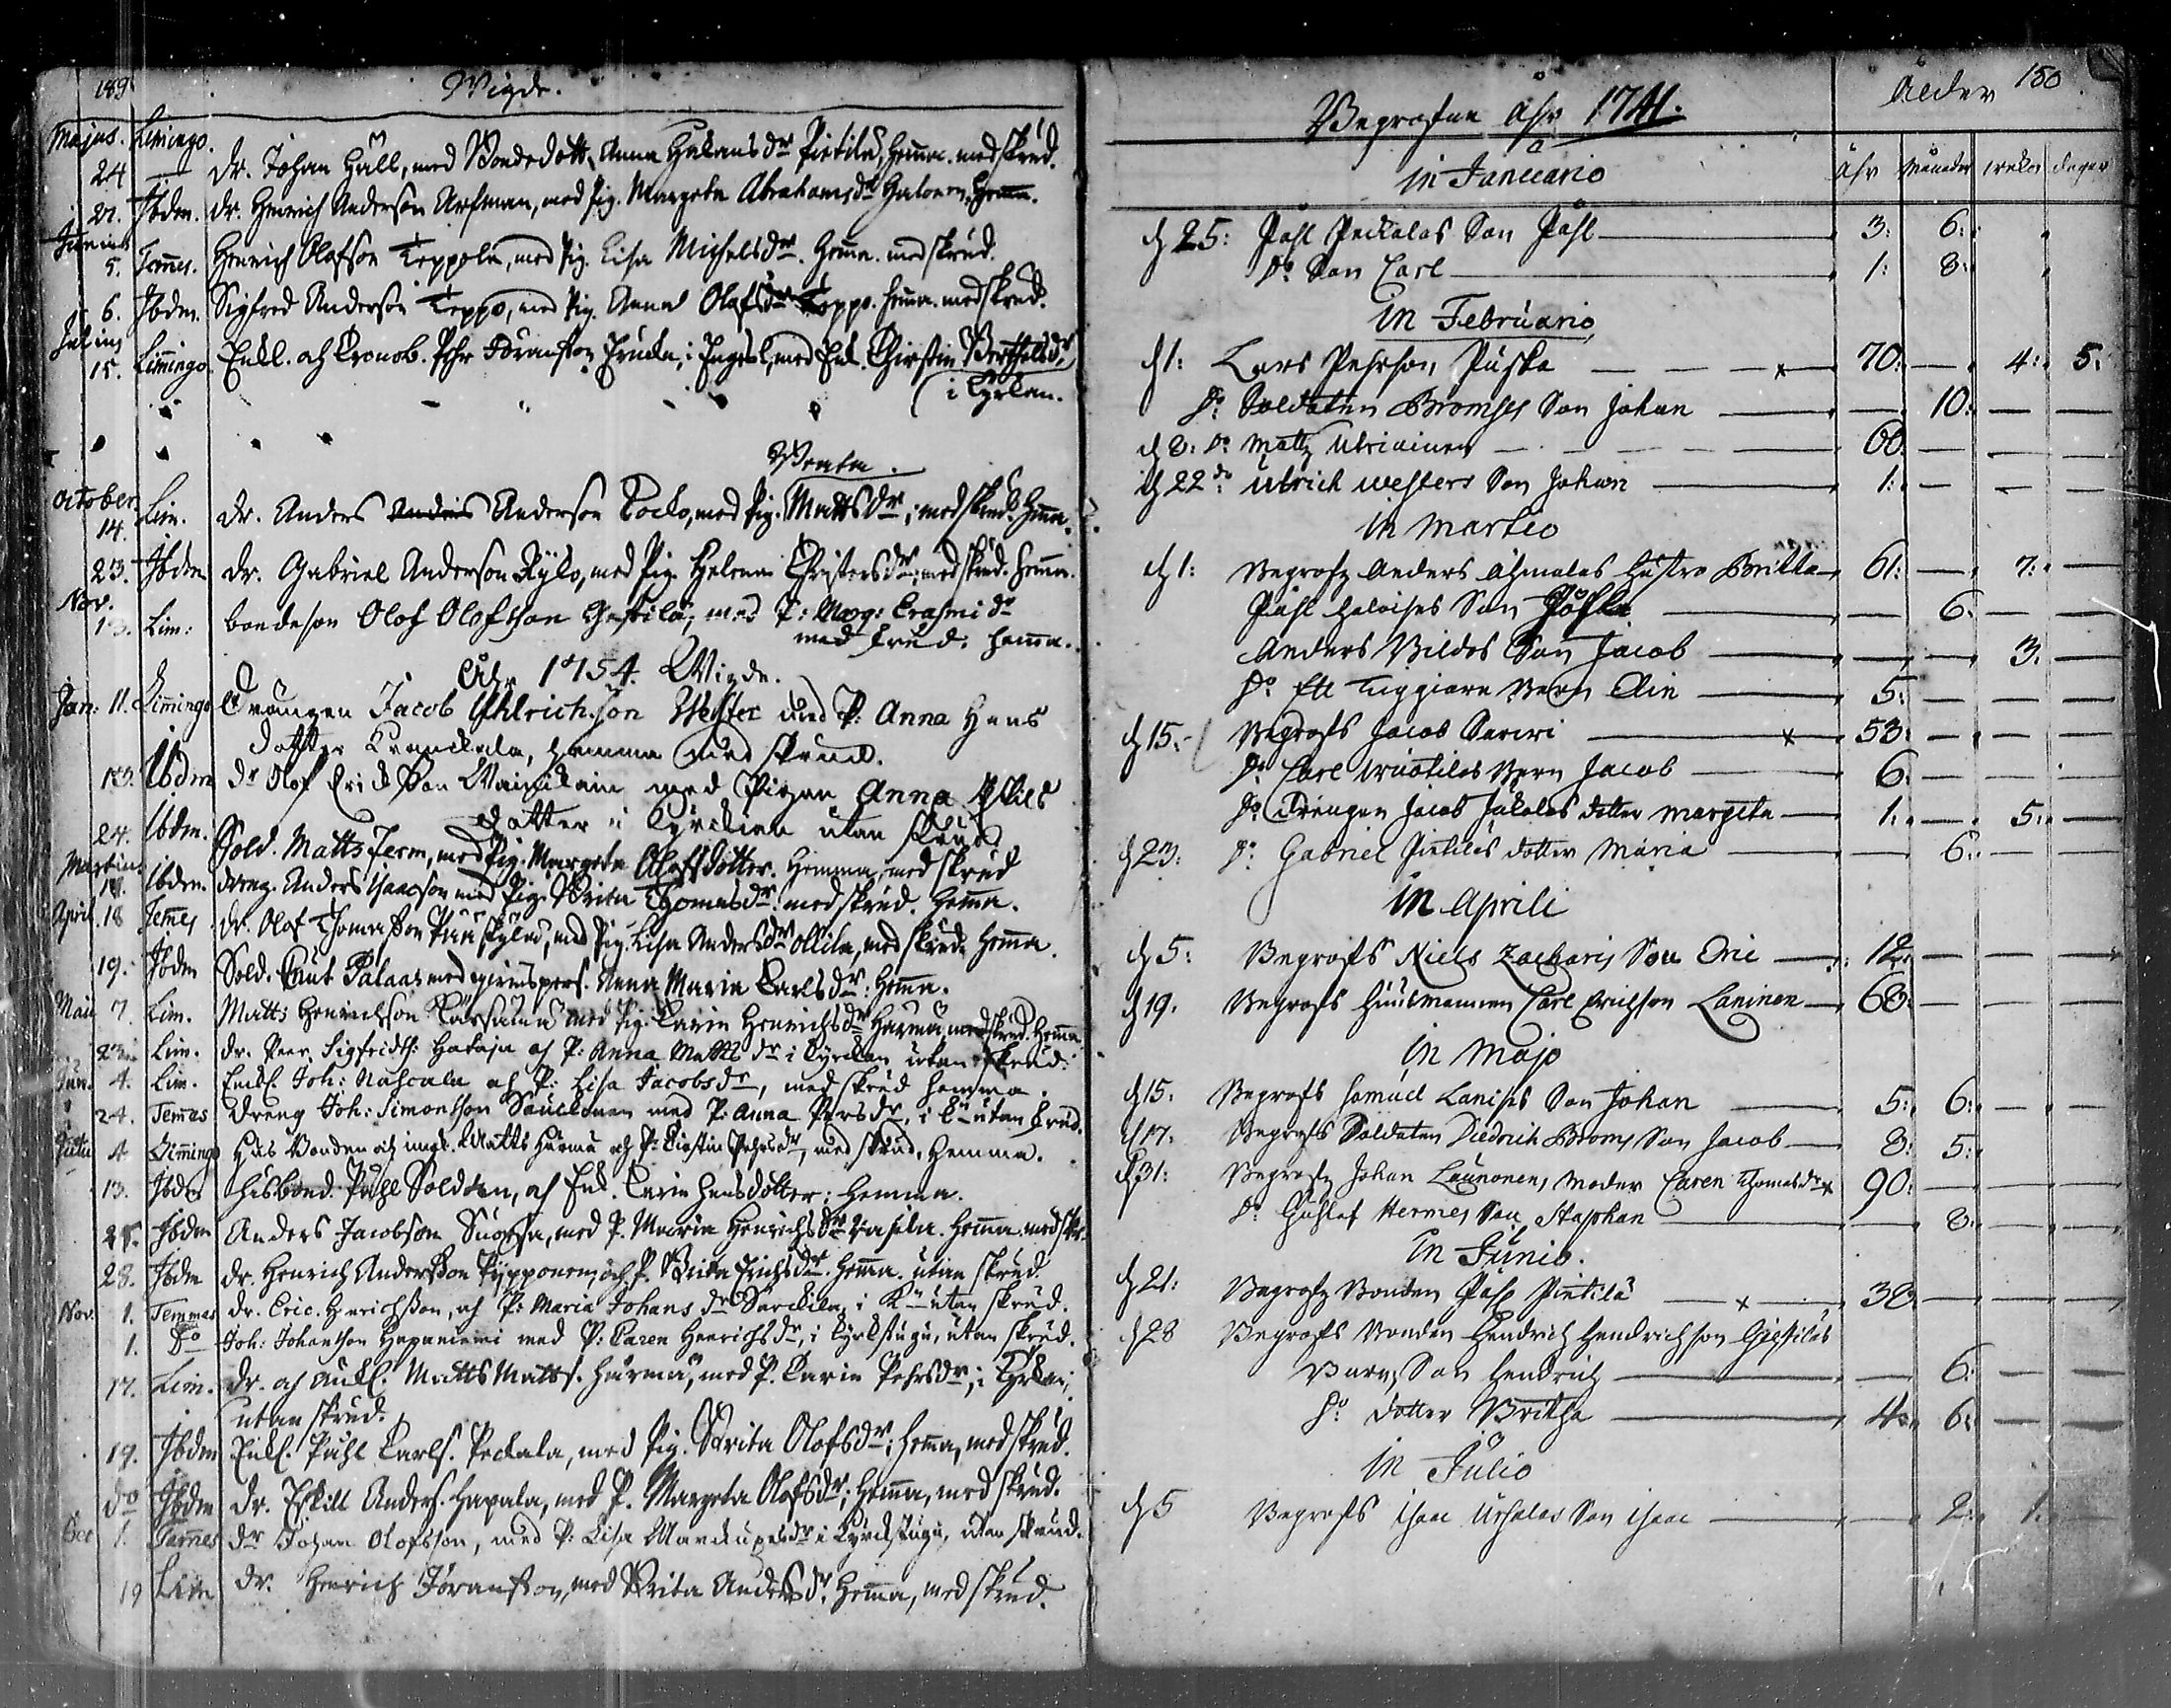 189
Wigde.
Majus. Limingo.
24 — Dr. Johan Häll, med Bondedott. Anna Håkansdr Pietilä, Hemma. med skrud.
21. Ibdm. Dr. Henrich Anderson med Pig. Margeta Abrahamsdr Hemma.
Junius
5. Temmes. Henrich Olofson Teppola, med Pig. Lisa Michelsdr. Hemma. med skrud.
6. Ibdm. Sigfred Anderson Teppo, med Pig. Anna Olofsdr Teppo. hemma. med skrud.
Julius
15. Limmingo Enkl. och Cronob. Pehr Jöranson i med Enk. Christin Berthelsdr
i Kyrkan.
Brita.
October
14. Lim. Dr. Anders Anders Anderson Kocko, med Pig. Mattsdr; med skrud. Hemma.
23. Ibdm Dr. Gabriel Anderson Rylo, med Pig. Helena Christersdr, med skrud. hemma.
Nov.
13. Lim: bondeson Olof Olofsson med P: Marg: Erasmi dr
med skrud. hemma.
Åhr 1754. Wigde.
Jan: 11. Limmingo Drängen Jacob Uhlrichson Wester med P: Anna Hans
dotter hemma med skrud.
13. Ibdm dr Olof Erichson med Pigan Anna Eskils
dotter i Kyrckian utan skrud.
24. Ibdm. Sold. Matts Ferm, med Pig. Margeta Olofsdotter. Hemma, med skrud
Martius
18. Ibdm. dreng. Anders Isaacson med Pig. Brita Thomasdr: med skrud. Hemma.
April 18 Temes dr. Olof Thomasson med Pig. Lisa Andersdr Ollila, med skrud. Hemma.
19. Ibdm Sold. Knut Palaas med qwinspers. Anna Maria Carlsdr: Hemma.
Maii 7. Lim. Matts Henrichson med Pig. Karin Henrichsdr Härmä, med skrud. Hemma
23. Lim. dr. Peer Sigfridss: Hakaja och P: Anna Matts dr i Kyrckan utan skrud:
Jun. 4. Lim. Enkl. Joh: och P: Lisa Jacobsdr, med skrud hemma.
24. Temmes Dreng Joh: Simonsson Sauckonen med P: Anna Persdr, i Kn utan skrud.
4 Limmingo Hus Bonden och Matts Härmä och P: Kirstin Pehrsdr, med skrud, Hemma.
13. Ibdm Husbond. Påhl Soldan, och Enk. Karin Hansdotter: Hemma.
25. Ibdm Anders Jacobson med P. Maria Henrichsdr Hemma. med skr.
28. Ibdm Dr. Henrich Anderson Pypponen, och P. Brita Erichsdr. Hemma. utan skrud.
Nov. 1. Temmes dr. Eric. Henrichsson, och P: Maria Johans dr Sarckila, i Kn utan skrud.
1. Do Joh: Johansson Hapaniemi med P: Caren Henrichsdr, i Kyrkstugu, utan skrud.
17. Lim. Dr. och Matts Matts. Härmä, med P. Karin Pehrsdr, i Kyrkan,
utan skrud.
19. Ibdm Enkl. Påhl Carls. Peckala, med Pig. Brita Olofsdr; hemma, med skrud.
Do Ibdm Dr. Eskill Anders. Hapala, med P. Margeta Olofsdr; Hemma, med skrud.
1. Temmes dr Johan Olofsson, med P: Lisa i Kyrckstugu, utan skrud.
19 Lim Dr. Henrich Jöransson, med Brita Andersdr. Hemma, med skrud.
150
Begrafne Åhr 1741.
Ålder
in Januario
Åhr Månader wekor dagar
d. 25: Påhl Peckalas Son Påhl — 3: 6:
Do Son Carl — 1: 8:
in Februario
d. 1: Lars Pehrson Puska — x — 70: — 4: 5:
Do Soldaten Bromses Son Johan — 10: — —
d. 8: Do Matz Ulriainen — 60 — — —
d. 22 do Ulrich Westers Son Johan — 1: — — —
in Martio
d. 1: Begrofz Anders Ähmalas hustro Britta — 61: — 7: —
Påhl Son Påhl — 6: — —
Anders Son Jacob — — 3. —
Do Ett Tiggiare Barn Elin — 5: — — —
d. 15. Begrofs Jacob Sarwi — x — 53: — — —
Do Carl Barn Jacob — 6: — — —
Do Drengen Jacob Jukolas dotter Margeta — 1: — 5: —
d. 23: Do Gabriel Pietiläs dotter Maria — — 6: — —
in Aprili
d. 5: Begrofs Niels Zacharis Son Eric — 12: — — —
d. 19. Begrofs Huusmannen Carl Erichson Laninen — 68: — — —
in Majo
d. 15: Begrofs Samuel Son Johan — 5: 6: — —
d. 17: Begrofs Soldaten Diedrich Broms Son Jacob — 8: 5:
d. 31: Begrofz Johan Launonens Moder Caren Thomasdr x 90: — — —
Do Gustaf Hermes Son Staphan — — 8: — —
in Junio.
d. 21: Begrofz Bonden Påhl Pietilä — x — 38: — — —
d. 28 Begrofs Bonden Hendrich Hendrichson
Barn, Son Hendrich — — 6: — —
Do dotter Britha — 4: 6: — —
in Julio
d. 5 Begrofs Isac Son Isac — — 2: 1.